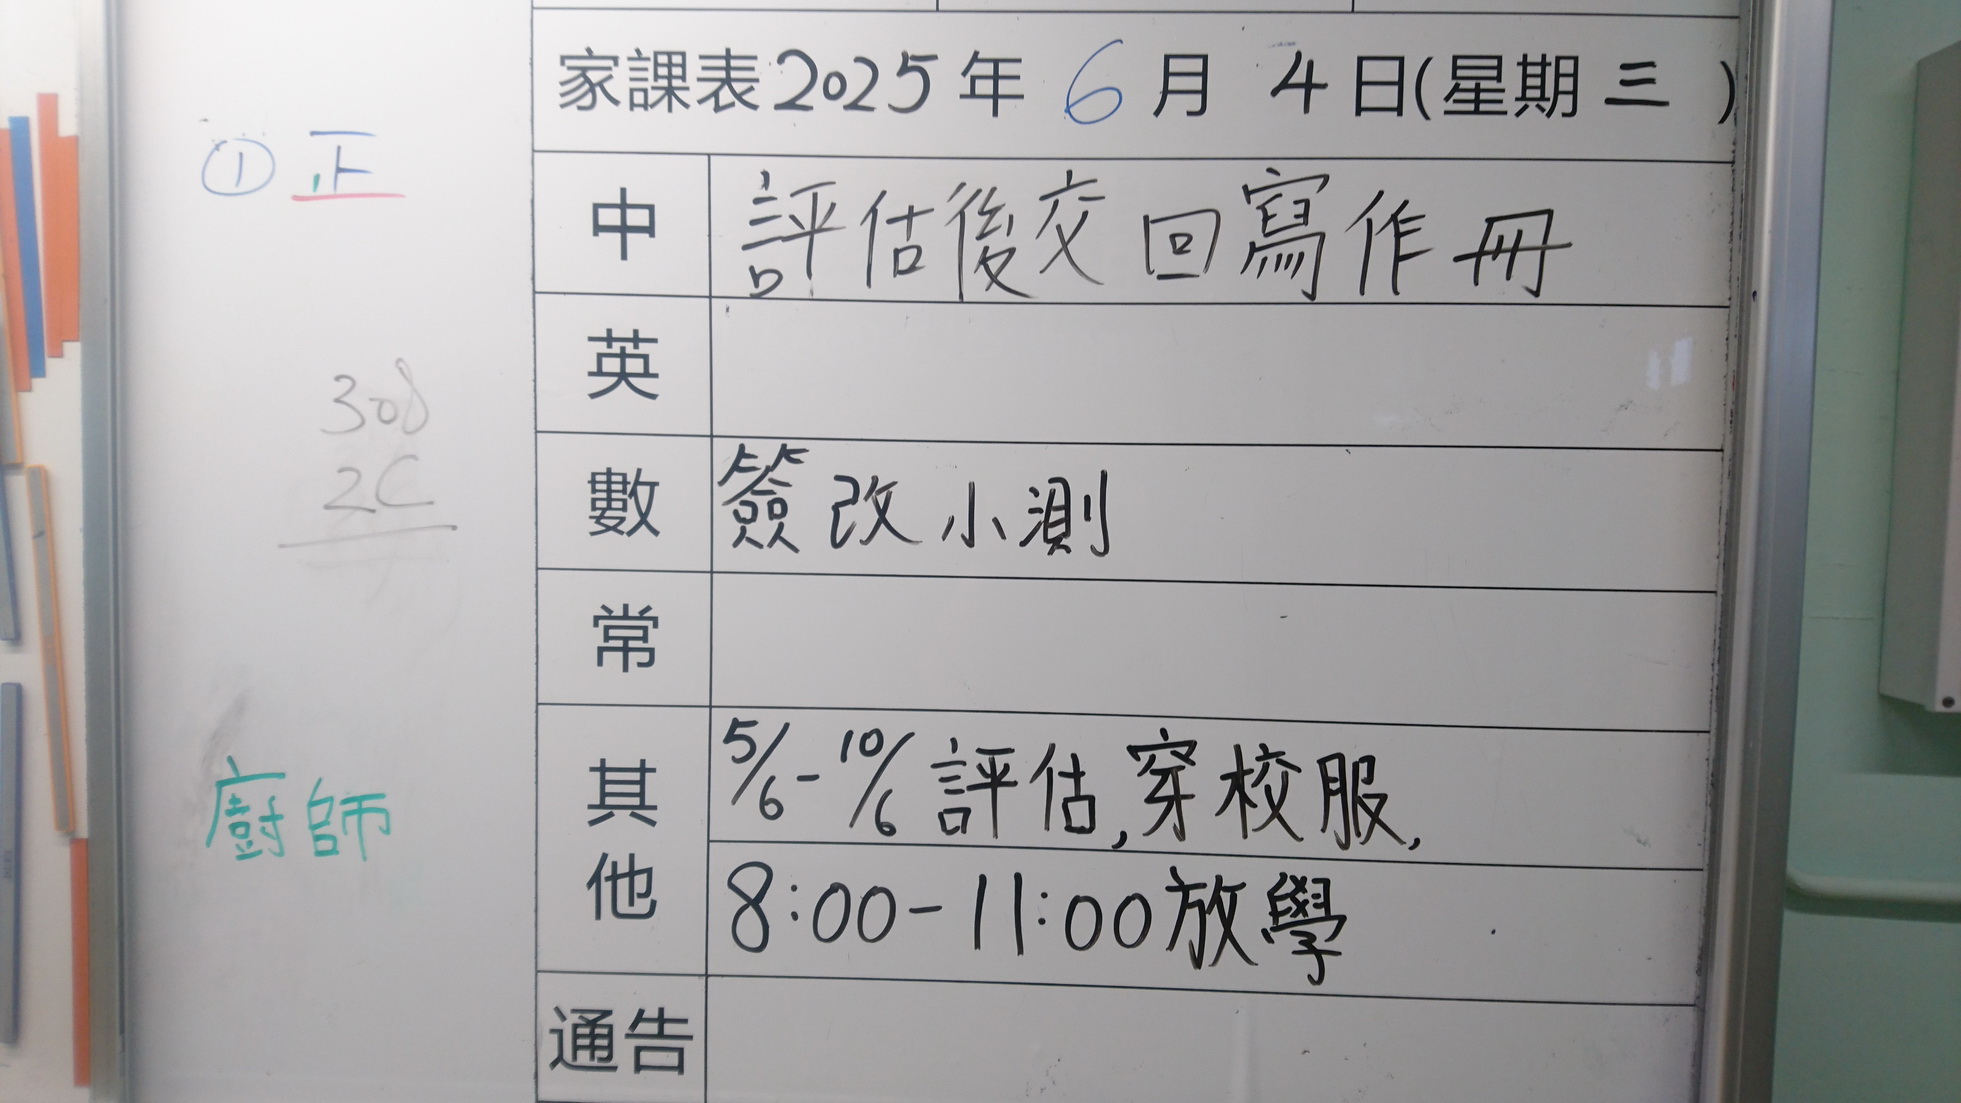 家課表2025年 6月 4日(星期三 )
中 評估後交回寫作冊
英
數 簽改小測
常
其他 5/6-10/6評估,穿校服,
8:00-11:00放學
通告
① 正
308
2C
廚師